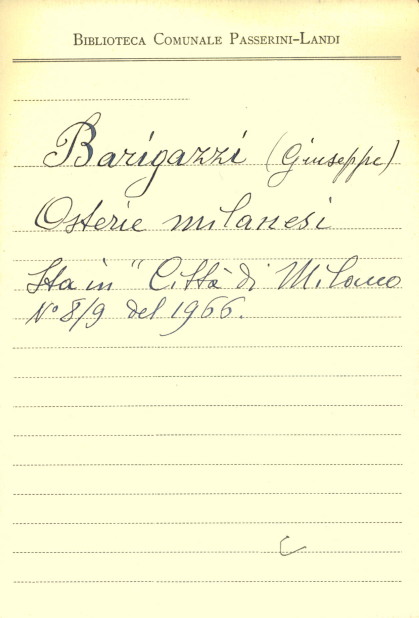 BIBLIOTECA COMUNALE PASSERINI-LANDI
Barigazzi (Giuseppe)
Osterie milanesi
Sta in "Città di Milano
N° 8/9 del 1966.
C